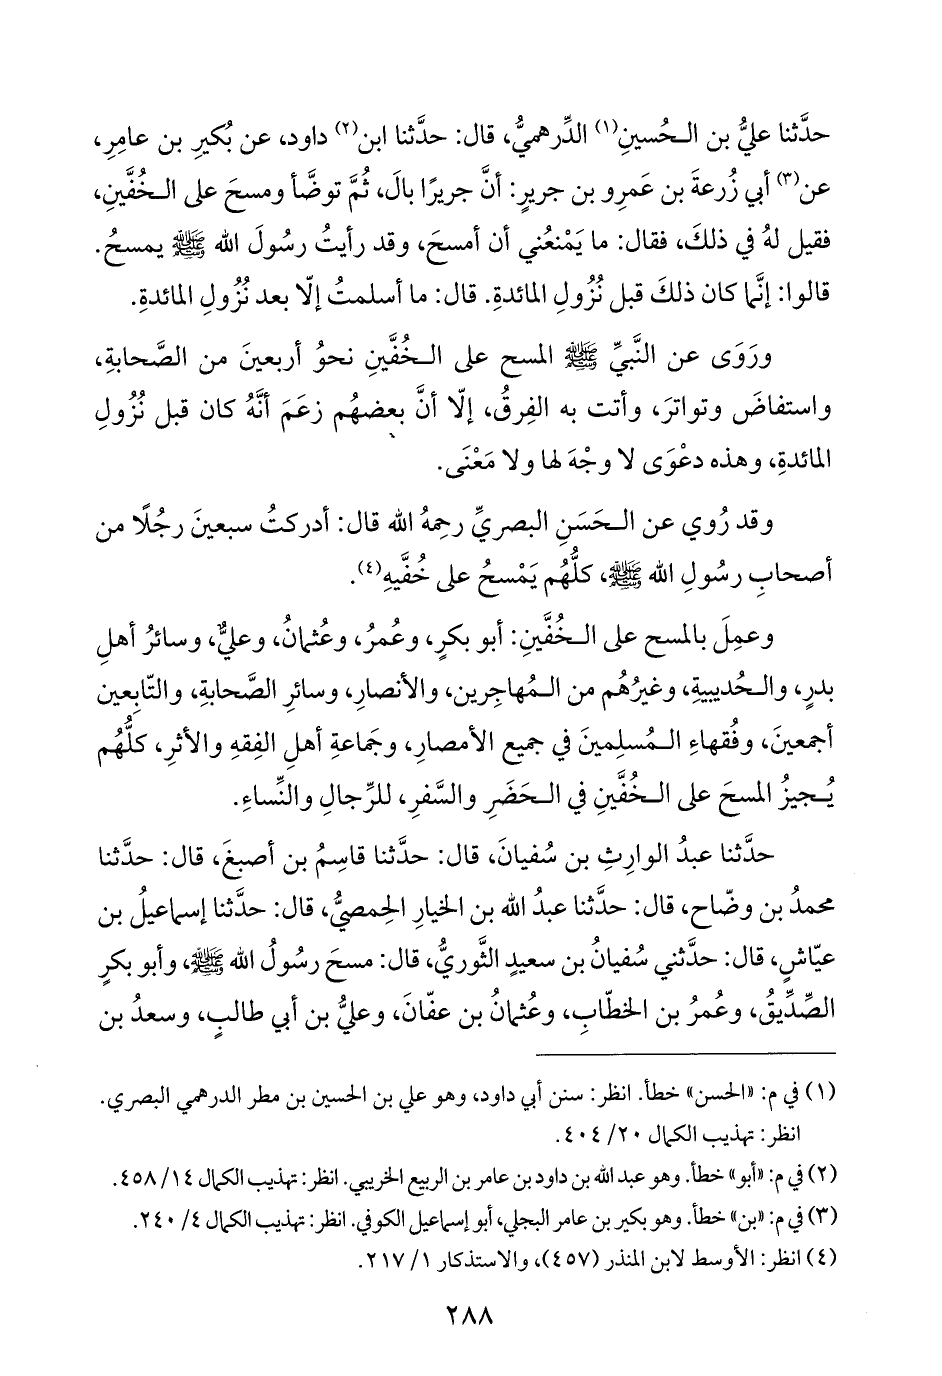 حدَّثنا عليُّ بن الـحُسينِ(١) الدِّرهميُّ، قال: حدَّثنا ابن(٢) داود، عن بُكيرِ بن عامِرٍ،
عن(٣) أبي زُرعةَ بن عَمرِو بن جريرٍ: أنَّ جريرًا بالَ، ثُمَّ توضَّأ ومسحَ على الـخُفَّينِ،
فقيل لهُ في ذلكَ، فقال: ما يَمْنعُني أن أمسحَ، وقد رأيتُ رسُولَ الله ﷺ يمسحُ.
قالوا: إنَّما كان ذلكَ قبل نُزُولِ المائدةِ. قال: ما أسلمتُ إلّا بعد نُزُولِ المائدةِ.
ورَوَى عن النَّبيِّ ﷺ المسح على الـخُفَّينِ نحوُ أربعينَ من الصَّحابةِ،
واستفاضَ وتواترَ، وأتت به الفِرقُ، إلّا أنَّ بعضهُم زعَمَ أنَّهُ كان قبل نُزُولِ
المائدةِ، وهذه دعْوَى لا وجْهَ لها ولا مَعْنَى.
وقد رُوي عن الـحَسَنِ البصريِّ رحِمهُ الله قال: أدركتُ سبعينَ رجُلًا من
أصحابِ رسُولِ الله ﷺ، كلُّهُم يَمْسحُ على خُفَّيهِ(٤).
وعمِلَ بالمسح على الـخُفَّينِ: أبو بكرٍ، وعُمرُ، وعُثمانُ، وعليٌّ، وسائرُ أهلِ
بدرٍ، والـحُديبيةِ، وغيرُهُم من الـمُهاجِرين، والأنصارِ، وسائرِ الصَّحابةِ، والتّابِعين
أجمعينَ، وفُقهاءِ الـمُسلمينَ في جميع الأمصارِ، وجَماعةِ أهلِ الفِقهِ والأثرِ، كلُّهُم
يُـجيزُ المسحَ على الـخُفَّينِ في الـحَضَرِ والسَّفرِ، للرِّجالِ والنِّساءِ.
حدَّثنا عبدُ الوارِثِ بن سُفيانَ، قال: حدَّثنا قاسِمُ بن أصبغَ، قال: حدَّثنا
محمدُ بن وضّاح، قال: حدَّثنا عبدُ الله بن الخيارِ الحِمصيُّ، قال: حدَّثنا إسماعيلُ بن
عيّاشٍ، قال: حدَّثني سُفيانُ بن سعيدٍ الثَّوريُّ، قال: مسحَ رسُولُ الله ﷺ، وأبو بكرٍ
الصِّدِّيقُ، وعُمرُ بن الخطّابِ، وعُثمانُ بن عفّانَ، وعليُّ بن أبي طالبٍ، وسعدُ بن
(١) في م: «الحسن» خطأ. انظر: سنن أبي داود، وهو علي بن الحسين بن مطر الدرهمي البصري.
انظر: تهذيب الكمال ٢٠/ ٤٠٤.
(٢) في م: «أبو» خطأ. وهو عبد الله بن داود بن عامر بن الربيع الخريبي. انظر: تهذيب الكمال ١٤/ ٤٥٨.
(٣) في م: «بن» خطأ. وهو بكير بن عامر البجلي، أبو إسماعيل الكوفي. انظر: تهذيب الكمال ٤/ ٢٤٠.
(٤) انظر: الأوسط لابن المنذر (٤٥٧)، والاستذكار ١/ ٢١٧.
٢٨٨